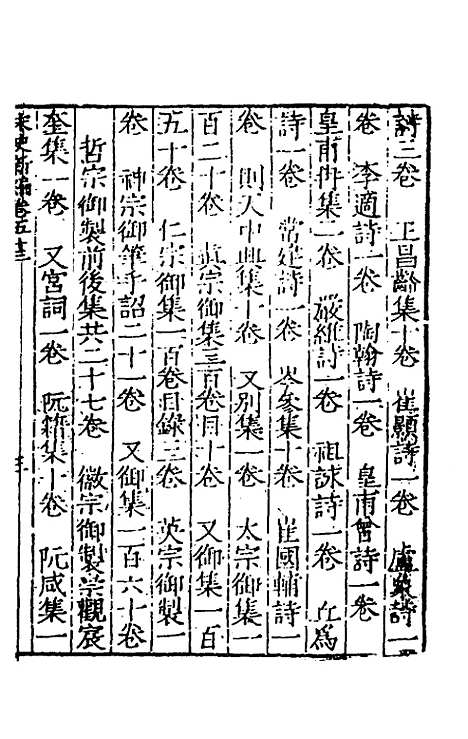 詩三卷　王昌齡集十卷　崔顥詩一卷　盧象詩一
卷　李適詩一卷　陶翰詩一卷　皇甫曾詩一卷
皇甫冉集二卷　嚴維詩一卷　祖詠詩一卷　丘為
詩一卷　常建詩一卷　岑參集十卷　崔國輔詩一
卷　則天中興集十卷　又別集一卷　太宗御集一
百二十卷　真宗御集三百卷目十卷　又御集一百
五十卷　仁宗御集一百卷目錄三卷　英宗御製一
卷　神宗御筆手詔二十一卷　又御集一百六十卷
哲宗御製前後集共二十七卷　徽宗御製崇觀宸
奎集一卷　又宮詞一卷　阮籍集十卷　阮咸集一
宋史新編卷五十三